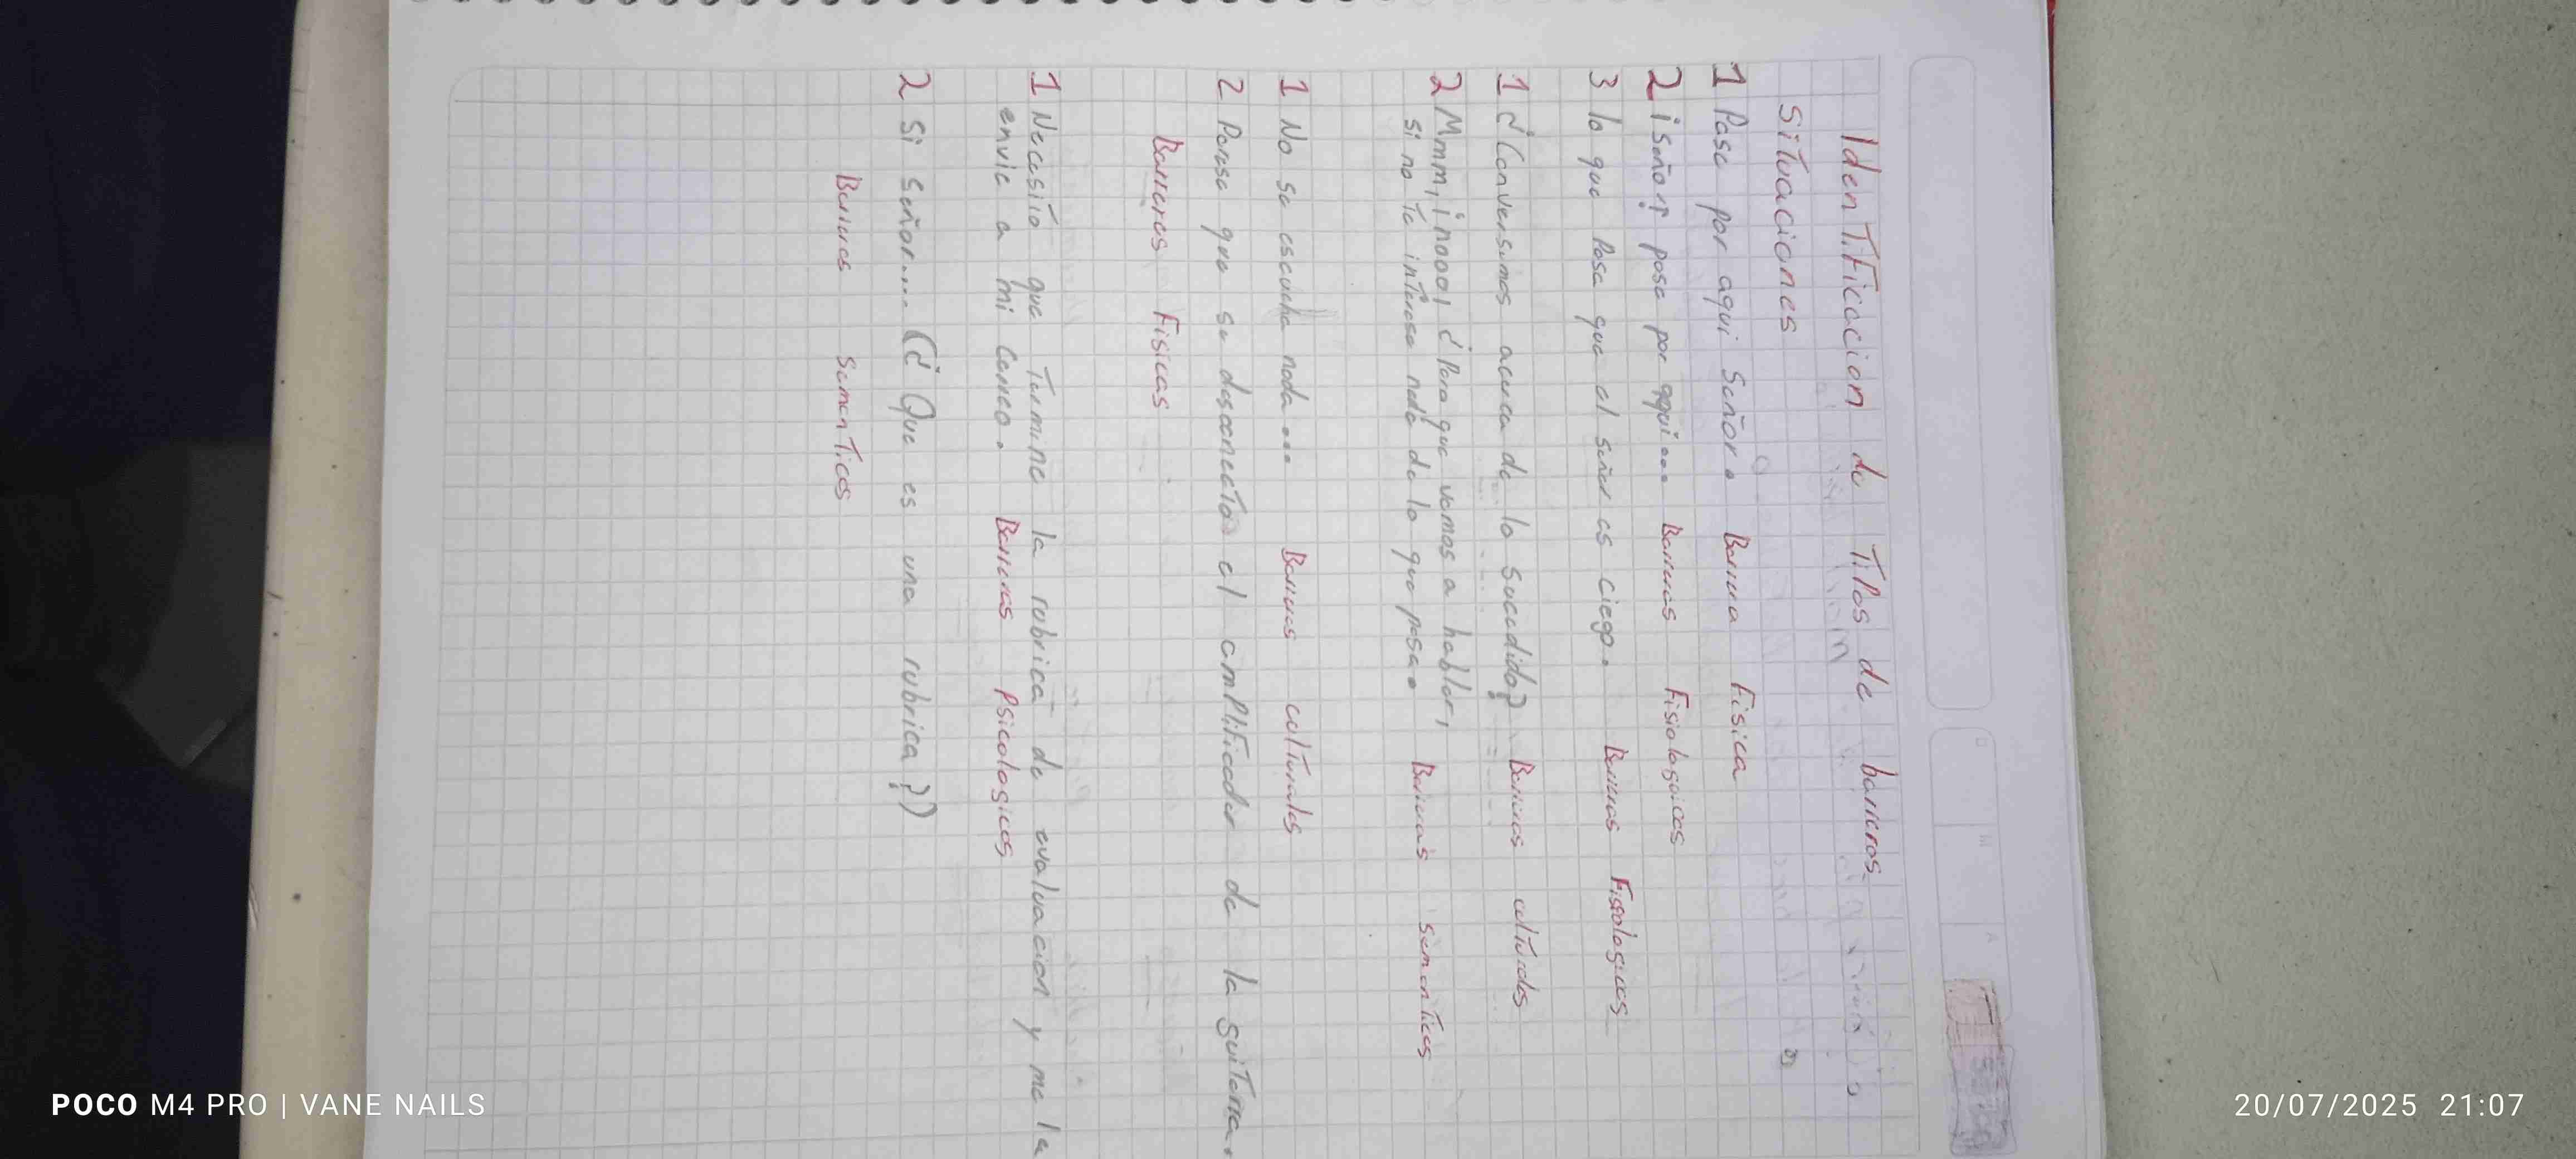 IdenTiFicacion de TiPos de barreras
Situaciones
1 Pase por aqui Señor. Barrera Fisica
2 ¡Señor! pase por aqui... Barreras Fisiologicas
3 lo que Pasa que el señor es ciego. Barreras Fisiologicas
1 ¿Conversamos acerca de lo sucedido? Barreras culturales
2 Mmm, ¡nooo! ¿Para que vamos a hablar,
si no te interesa nada de lo que pasa. Barreras semanticas
1 No se escucha nada... Barreras culturales
2 Parese que se desconecto el amplificador de la guitarra.
Barreras Fisicas
1 Necesito que Termine la rubrica de evaluacion y me la
envie a mi correo. Barreras Psicologicas
2 Si señor.... (¿Que es una rubrica?)
Barreras SemanTicas
POCO M4 PRO | VANE NAILS
20/07/2025 21:07